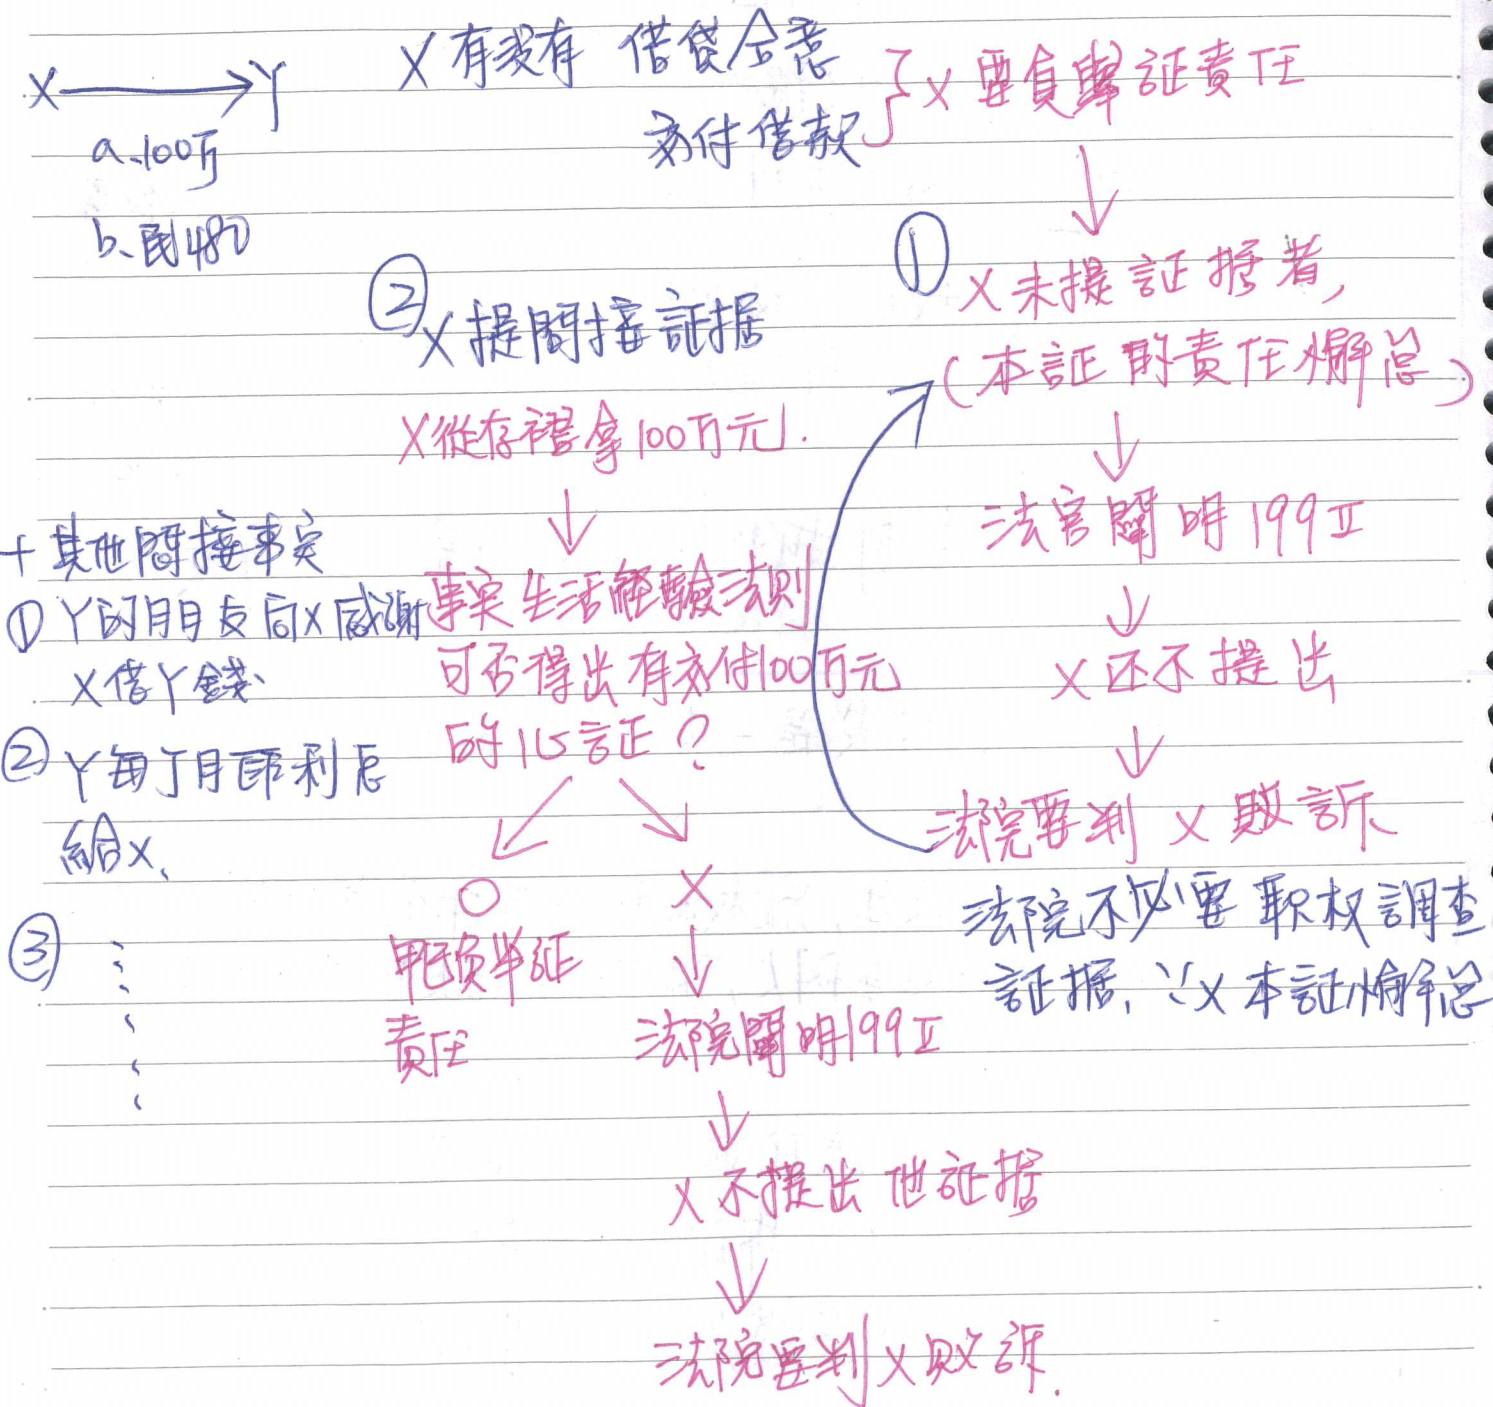 X → Y
a、100万
b、民480
X 有沒有 借貸合意
交付借款
} X 要負舉証責任
↓
① X 未提証据者,
(本証的責任懈怠)
↓
法官闡明 199Ⅱ
↓
X 还不提出
↓
法院要判 X 敗訴、
法院不必要职权調查
証据, ∵X 本証懈怠
② X 提間接証据
X從存褶拿100万元.
↓
事実生活経驗法則
可否得出有交付100万元
的心証?
↙ ↘
○ X
已负举証
責任
↓
法院闡明199Ⅱ
↓
X 不提出他証据
↓
法院要判 X 敗訴.
+ 其他間接事実
① Y的朋友向X感謝
X借Y錢、
② Y每个月匯利息
給X、
③